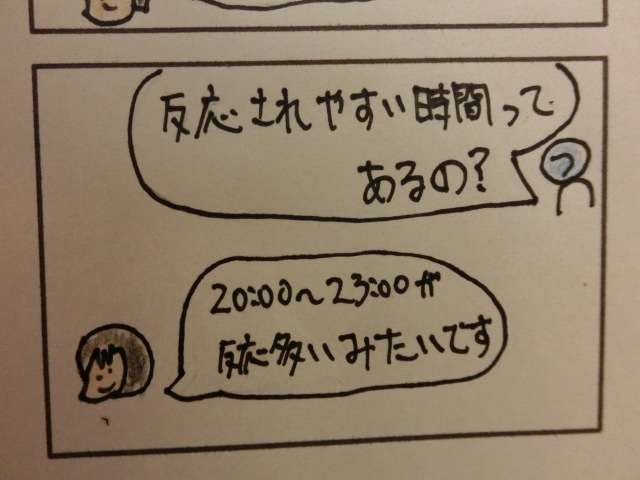 反応されやすい時間って
あるの?
20:00〜23:00が
反応多いみたいです
つ